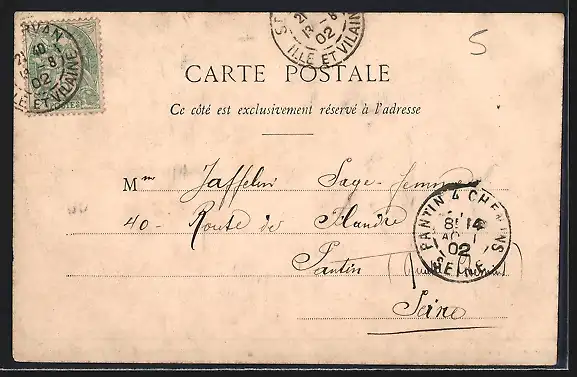 RVAN
21 40
13 -8
02
ILLE ET VILAINE
13 -8
02
ILLE ET VILAINE
5
CARTE POSTALE
Ce côté est exclusivement réservé à l'adresse
Mme Jaffelin Sage-femme
40 - Route de Flandre
Pantin (Quatre Chemins)
Seine
PANTIN 4 CHEMINS
8E 14
AO
02
SEINE